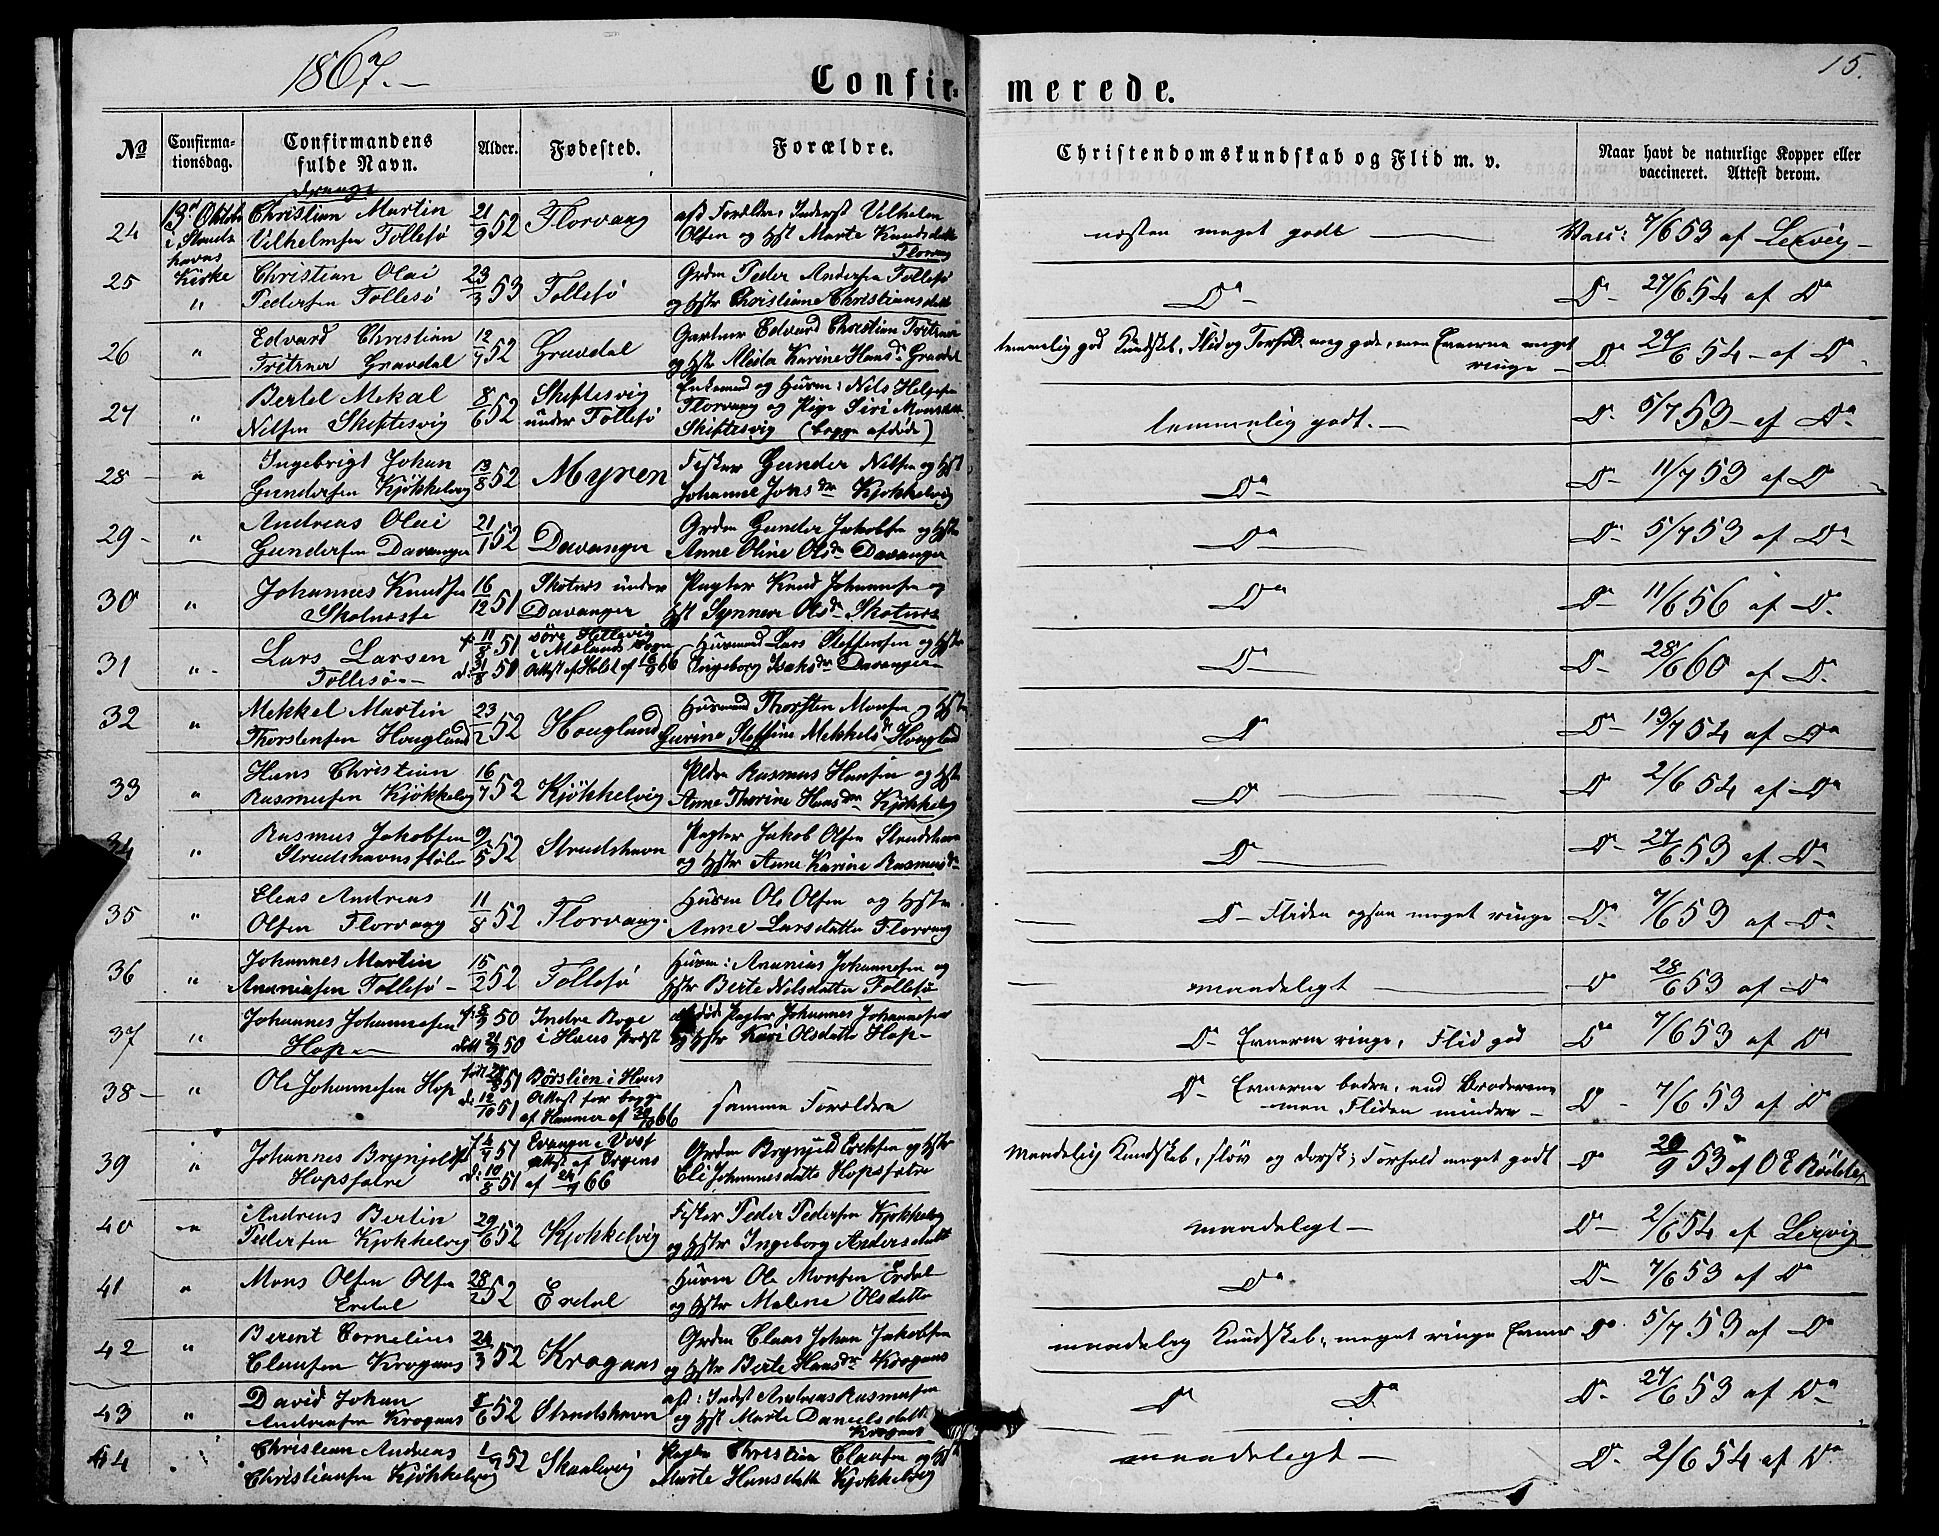 1867.
15.
Confir- merede.
No
Confirma-
tionsdag.
Confirmandens
fulde Navn.
Alder.
Fødested.
Forældre.
Christendomskundskab og Flid m. v.
Naar havt de naturlige Kopper eller
vaccineret. Attest derom.
Drenge
24 Christian Martin
Vilhelmsen Follesø
21/9 52 Florvaag
Vilhelm
Olsen og Marte Knudsdatter
Florvaag
næsten meget godt
7/6 53 af Lexvig
Kirke
25 Christian Olai
Pedersen Follesø
23/3 53 Follesø
Grdm Peder Andersen Follesø
og Hstr Christiane Christiansdatter
Do 27/6 54 af Do
26 " Edvard Christian
Fritzner Gravdal
12/7 52 Gravdal
Gartner Edvard Christian Fritzner
og Hstr Karine Hansdr Gravdal
temmelig god Kundskab, Flid og Forhold meg. gode, men Evnerne meget
ringe
27 " Bertel Mekal
Nilsen Skiftesvig
8/6 52 Skiftesvig
under Follesø
Enkemand og Husm: Nils Helgesen
Florvaag og Pige Siri Monsdatter
Skiftesvig (begge afdøde)
temmelig godt.
Do 5/7 53 af Do
28 " Ingebrigt Johan
Gundersen Kjøkkelvig
13/8 52 Myren
Fisker Gunder Nilsen og Hstr
Johanne Jonsdr Kjøkkelvig
Do
Do 11/7 53 af Do
29 " Andreas Olai
Gundersen Davanger
21/1 52 Davanger
Grdm Gunder Jakobsen og Hstr
Anne Oline Olsdr Davanger
Do
Do 5/7 53 af Do
30 " Johannes Knudsen
Skolnæste
16/12 51 Skotnes under
Davanger
Pagter Knud Johannesen og
Hstr Synneva Olsdr Skotnes
Do
Do 11/6 56 af Do
31 " Lars Larsen
Follesø
f. 11/8 51
d. 31/8 50
Husmand Lars Steffensen og Hstr
Ingeborg Isaksdr Davanger
Do
Do 28/6 60 af Do
32 " Mekkel Martin
Thorstensen Hougland
23/2 52 Hougland
Husmand Thorsten Monsen og Hstr
Gurine Steffine Mekkelsdr Hougland
Do
Do 19/7 54 af Do
33 " Hans Christian
Rasmusen Kjøkkelvig
16/7 52 Kjøkkelvig
Rasmus Hansen og Hstr
Anne Thorine Hansdr Kjøkkelvig
Do
Do 2/6 54 af Do
34 " Rasmus Jakobsen
Strudshavnsstølen
9/5 52 Strudshavn
Pagter Jakob Olsen Strudshavn
og Hstr Anne Karine Rasmusdr
Do
Do 27/6 53 af Do
35 " Elias Andreas
Olsen Florvaag
11/8 52 Florvaag
Husm Ole Olsen og Hstr
Anne Larsdatter Florvaag
Do Fliden ogsaa meget ringe
Do 7/6 53 af Do
36 " Johannes Martin
Ananiasen Follesø
15/2 52 Follesø
Husm: Ananias Johannesen og
Hstr Berte Nilsdatter Follesø
maadeligt
Do 28/6 53 af Do
37 " Johannes Johannesen
Hop
Indre Boge
i Hous Præst
afdøde Pagter Johannes Johannesen
og Hstr Kari Olsdatter Hop
Do Evnerne ringe, Flid god
Do 7/6 53 af Do
38 " Ole Johannesen Hop
Børslien i Hous
Attest for begge
af Hammer af 66
samme Forældre
Do Evnerne bedre, end Broderens
men Fliden mindre
Do 7/6 53 af Do
39 " Johannes Brynjelfsen
Hopsfalre
f. 4/7 51
d. 10/8 51
Evanger i Voss
Attest af Irgens
af 24/9 66
Grdm Brynjulf Eriksen og Hstr
Eli Johannesdatter Hopsfalre
Maadelig Kundskab, sløv og dorsk; Forhold meget godt
Do 20/9 53 af O E
40 " Andreas Bertin
Pedersen Kjøkkelvig
29/6 52 Kjøkkelvig
Fisker Peder Pedersen Kjøkkelvig
og Hstr Ingeborg Andersdatter
maadeligt
Do 2/6 54 af Lexvig
41 " Mons Olsen Olsen
Erdal
28/2 52 Erdal
Husm Ole Monsen Erdal
og Hstr Malene Olsdatter
Do
Do 7/6 53 af Do
42 " Berent Cornelius
Clausen Krogaas
24/3 52 Krogaas
Grdm Claus Johan Jakobsen
og Hstr Berte Hansdr Krogaas
maadelig Kundskab, meget ringe Evner
Do 5/7 53 af Do
43 " David Johan
Andreasen Krogaas
52 Strudshavn
Andreas Rasmusen
og Hstr Marte Danielsdatter
Krogaas
Do Do
Do 27/6 53 af Do
44 Christian Andreas
Christiansen Kjøkkelvig
1/9 52 Skaalevig
Pagter Christian Clausen og Hstr
Marte Hansdatter Kjøkkelvig
maadeligt
Do 2/6 54 af Do